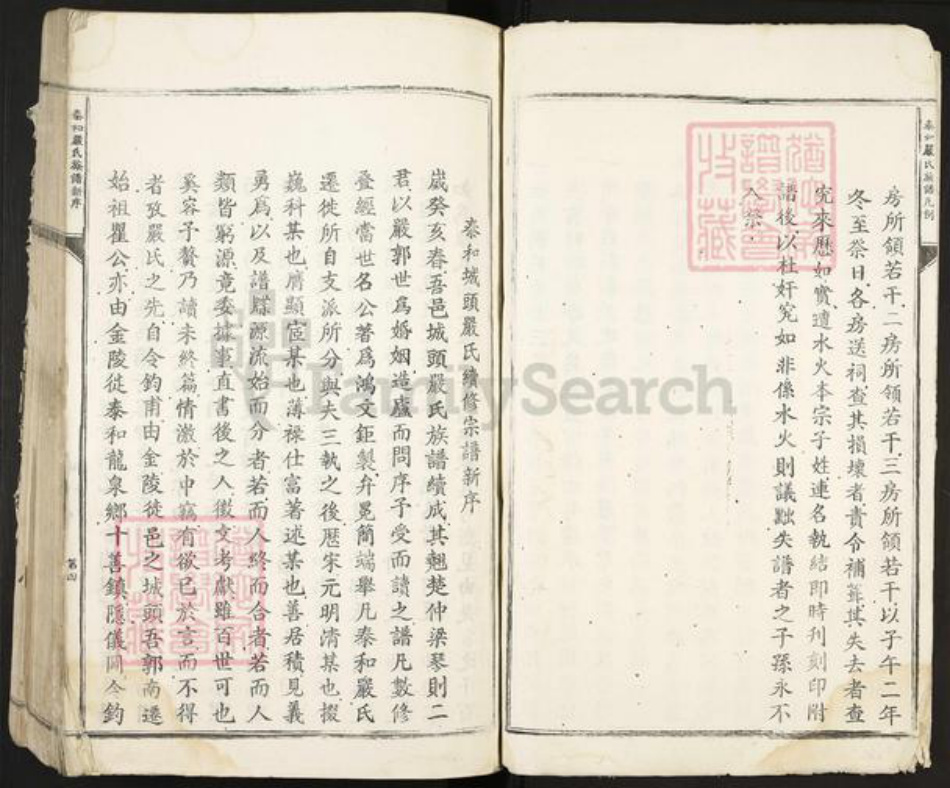 泰和嚴氏族譜凡例
房所領若干二房所領若干三房所領若干以子午二年
冬至祭日各房送祠查其損壞者責令補葺其失去者查
究來歷如實遭水火本宗子姓連名執結即時刊刻印附
譜後以杜奸究如非係水火則議黜失譜者之子孫永不
入祭
泰和城頭嚴氏續修宗譜新序
歲癸亥春吾邑城頭嚴氏族譜續成其翹楚仲梁琴則二
君以嚴郭世爲婚姻造廬而問序予受而讀之譜凡數修
叠經當世名公著爲鴻文鉅製弁冕簡端舉凡泰和嚴氏
遷徙所自支派所分與夫三執之後歷宋元明清某也掇
巍科某也膺顯宦某也薄祿仕富著述某也善居積見義
勇爲以及譜牒源流始而分者若而人終而合者若而人
類皆窮源竟委據事直書後之人徵文考獻雖百世可也
奚容予贅乃讀未終篇情激於中竊有欲已於言而不得
者攷嚴氏之先自令鈞甫由金陵徙邑之城頭吾郭南遷
始祖瞿公亦由金陵徙泰和龍泉鄉十善鎮隱儀同令鈞
泰和嚴氏族譜新序
FamilySearch